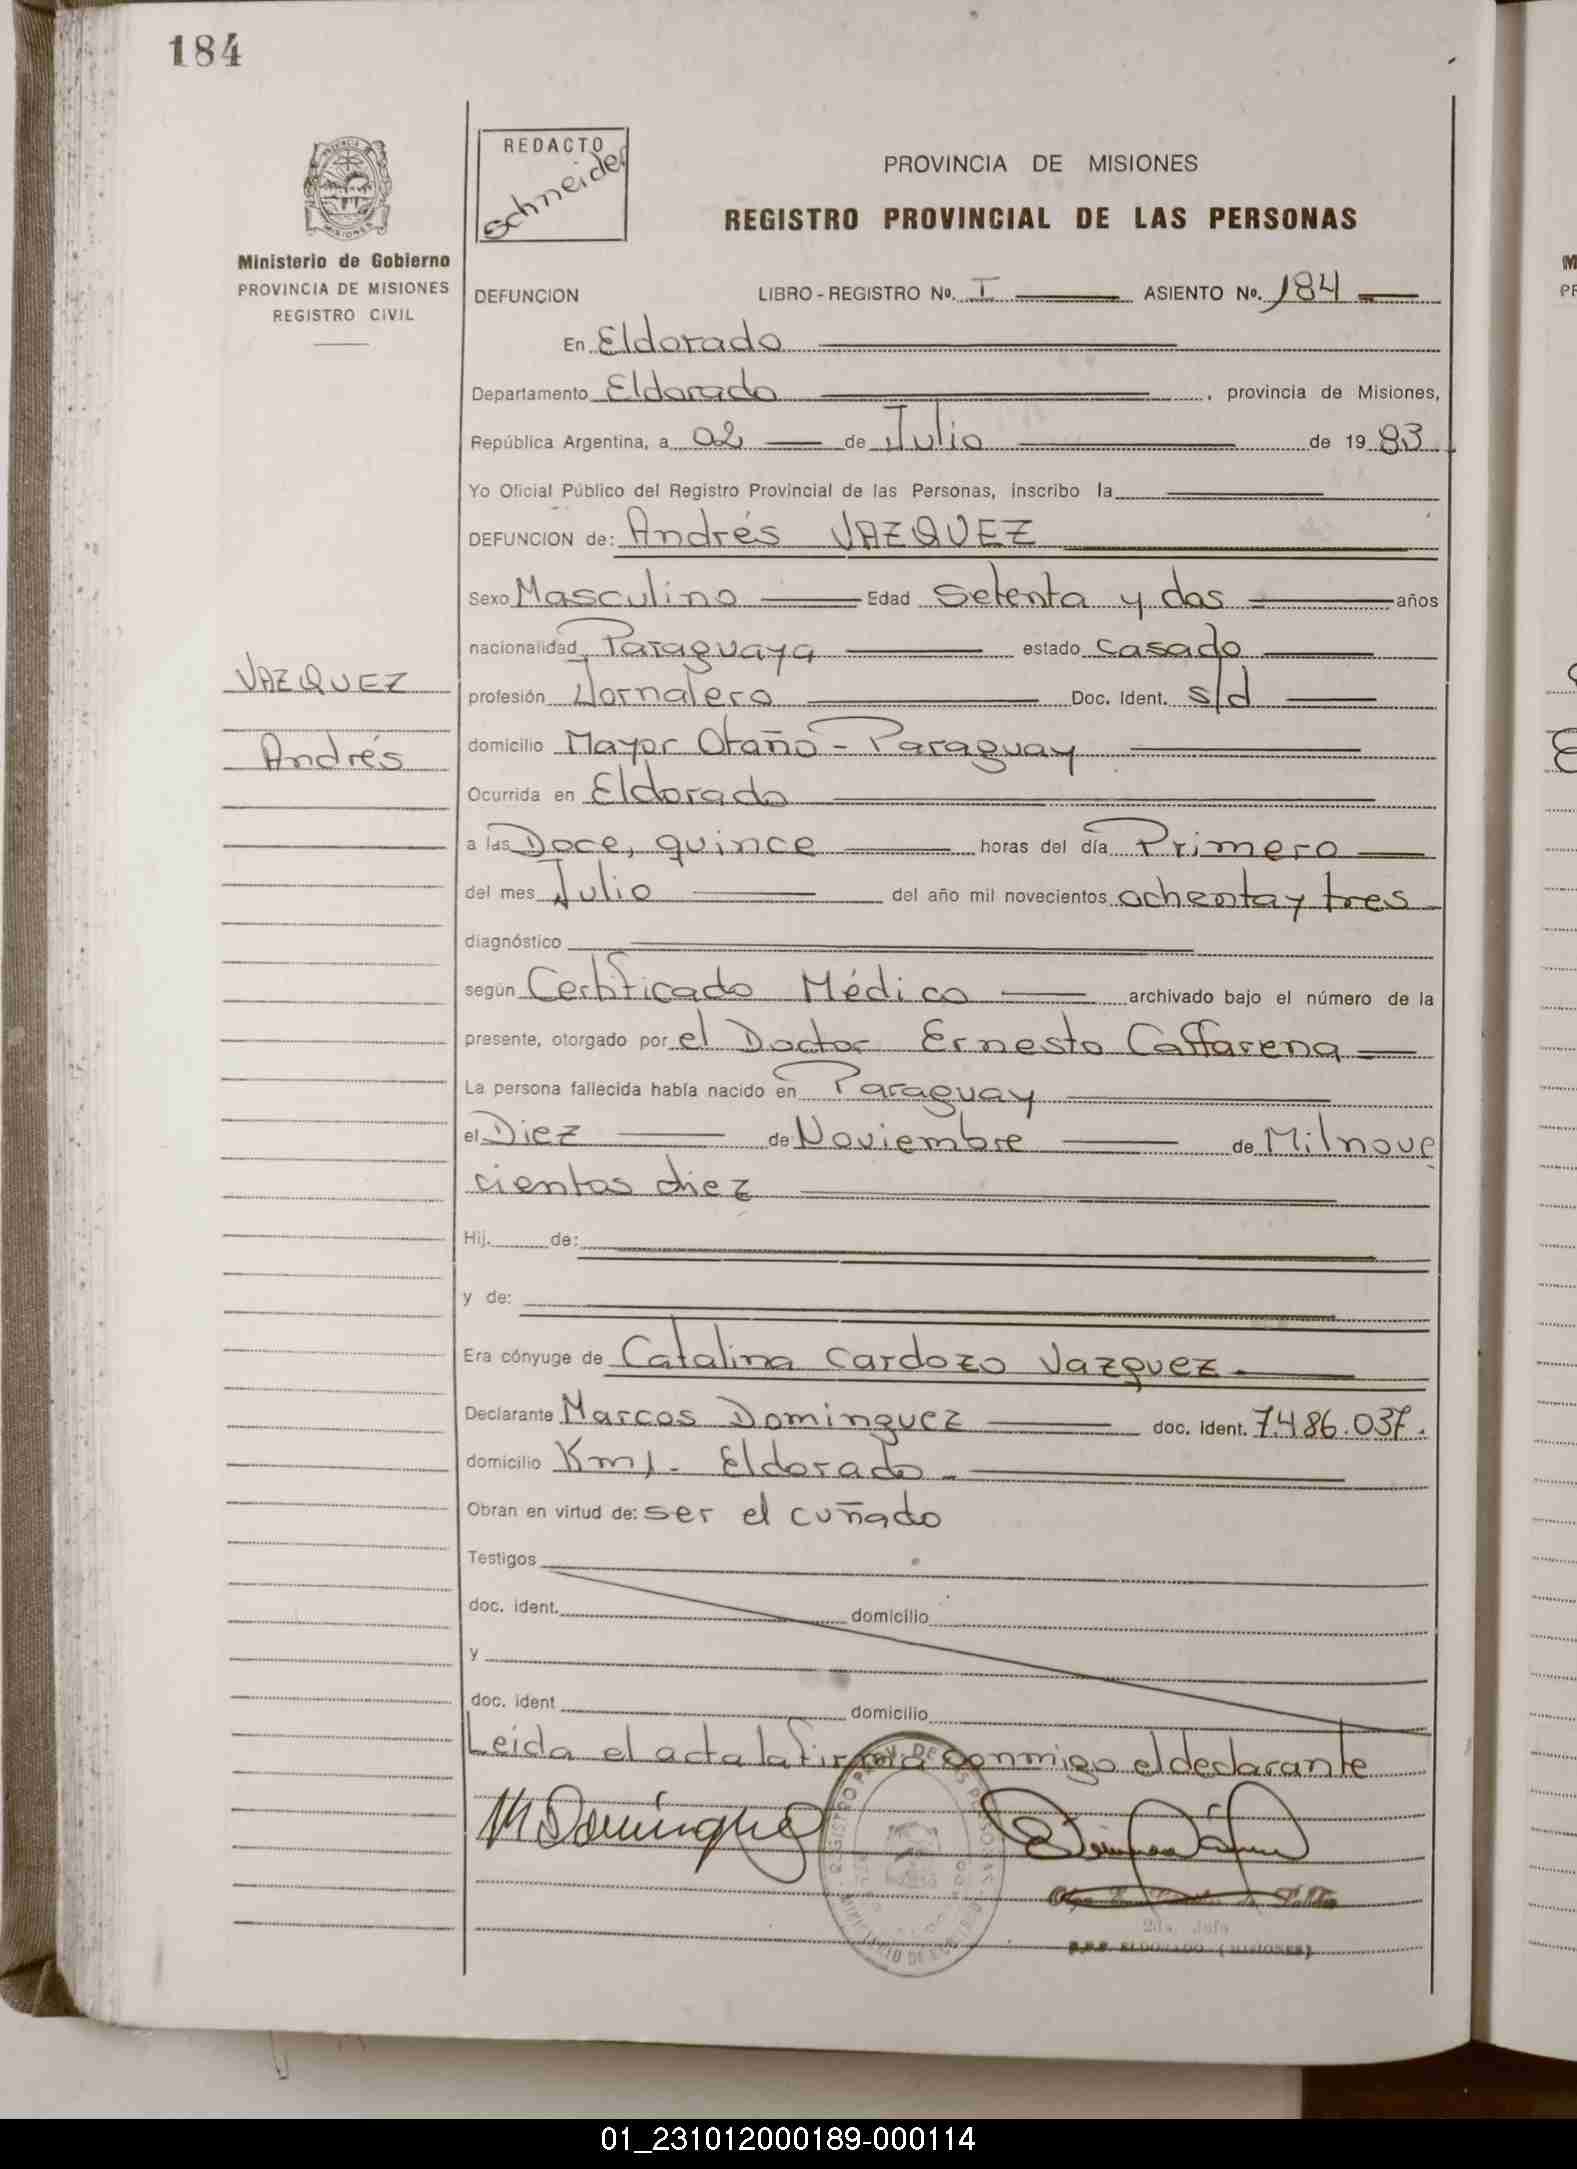 184
REDACTO
Schneider
PROVINCIA DE MISIONES
REGISTRO PROVINCIAL DE LAS PERSONAS
Ministerio de Gobierno
PROVINCIA DE MISIONES
REGISTRO CIVIL
DEFUNCION LIBRO - REGISTRO No. I ASIENTO No. 184
En Eldorado
Departamento Eldorado, provincia de Misiones,
República Argentina, a 02 de Julio de 1983
Yo Oficial Público del Registro Provincial de las Personas, inscribo la
DEFUNCION de: Andrés VAZQUEZ
Sexo Masculino Edad Setenta y dos años
nacionalidad Paraguaya estado casado
VAZQUEZ
Andrés
profesión Jornalero Doc. Ident. s/d
domicilio Mayor Otaño - Paraguay
Ocurrida en Eldorado
a las Doce, quince horas del día Primero
del mes Julio del año mil novecientos ochenta y tres
diagnóstico
según Certificado Médico archivado bajo el número de la
presente, otorgado por el Doctor Ernesto Caffarena
La persona fallecida había nacido en Paraguay
el Diez de Noviembre de Mil nove
cientos diez
Hij. de:
y de:
Era cónyuge de Catalina Cardozo Vazquez.
Declarante Marcos Dominguez doc. Ident. 7.486.037.
domicilio Km 1. Eldorado.
Obran en virtud de: ser el cuñado
Testigos
doc. ident. domicilio
y
doc. ident domicilio
Leida el acta la firma conmigo el declarante
M Dominguez
ELDORADO (MISIONES)
01_231012000189-000114